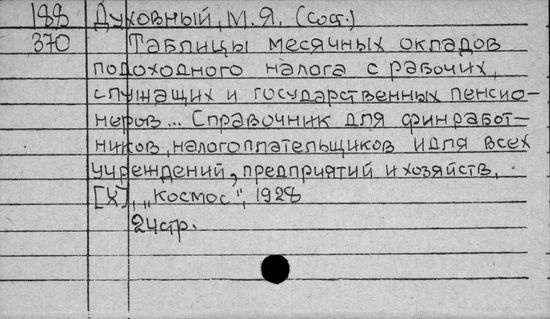 188 Духовный, М.Я. (сост.)
370 Таблицы месячных окладов
подоходного налога с рабочих,
служащих и государственных пенсио-
неров... Справочник для финработ-
ников, налогоплательщиков и для всех
учреждений, предприятий и хозяйств.
[Х], „Космос", 1928
24стр.